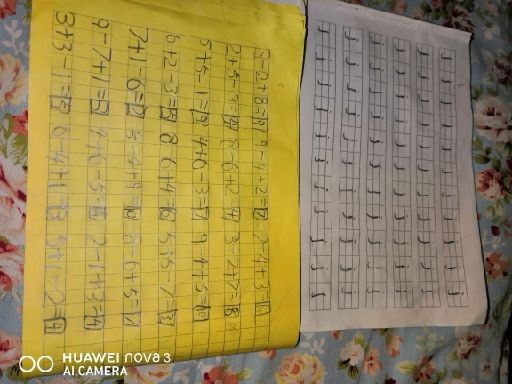 j j j j j j j j j j
j j j j j j j j j j
j j j j j j j j j j
j j j j j j j j j j
j j j j j j j j j j
j j j j j j j j j j
3-2+8=9 9-4+2=7
8-6+2=4
5+5-1=9 4+6-3=7 9-4+5=10
6+2-3=5 8-6+4=6 5+5-7=3
7+1-6=2 5-4+9=10 8-6+5=7
4+6-5=5 2-1+3=4
3+3-1=5 6-4+1=3 5+1-2=4
HUAWEI nova 3
AI CAMERA